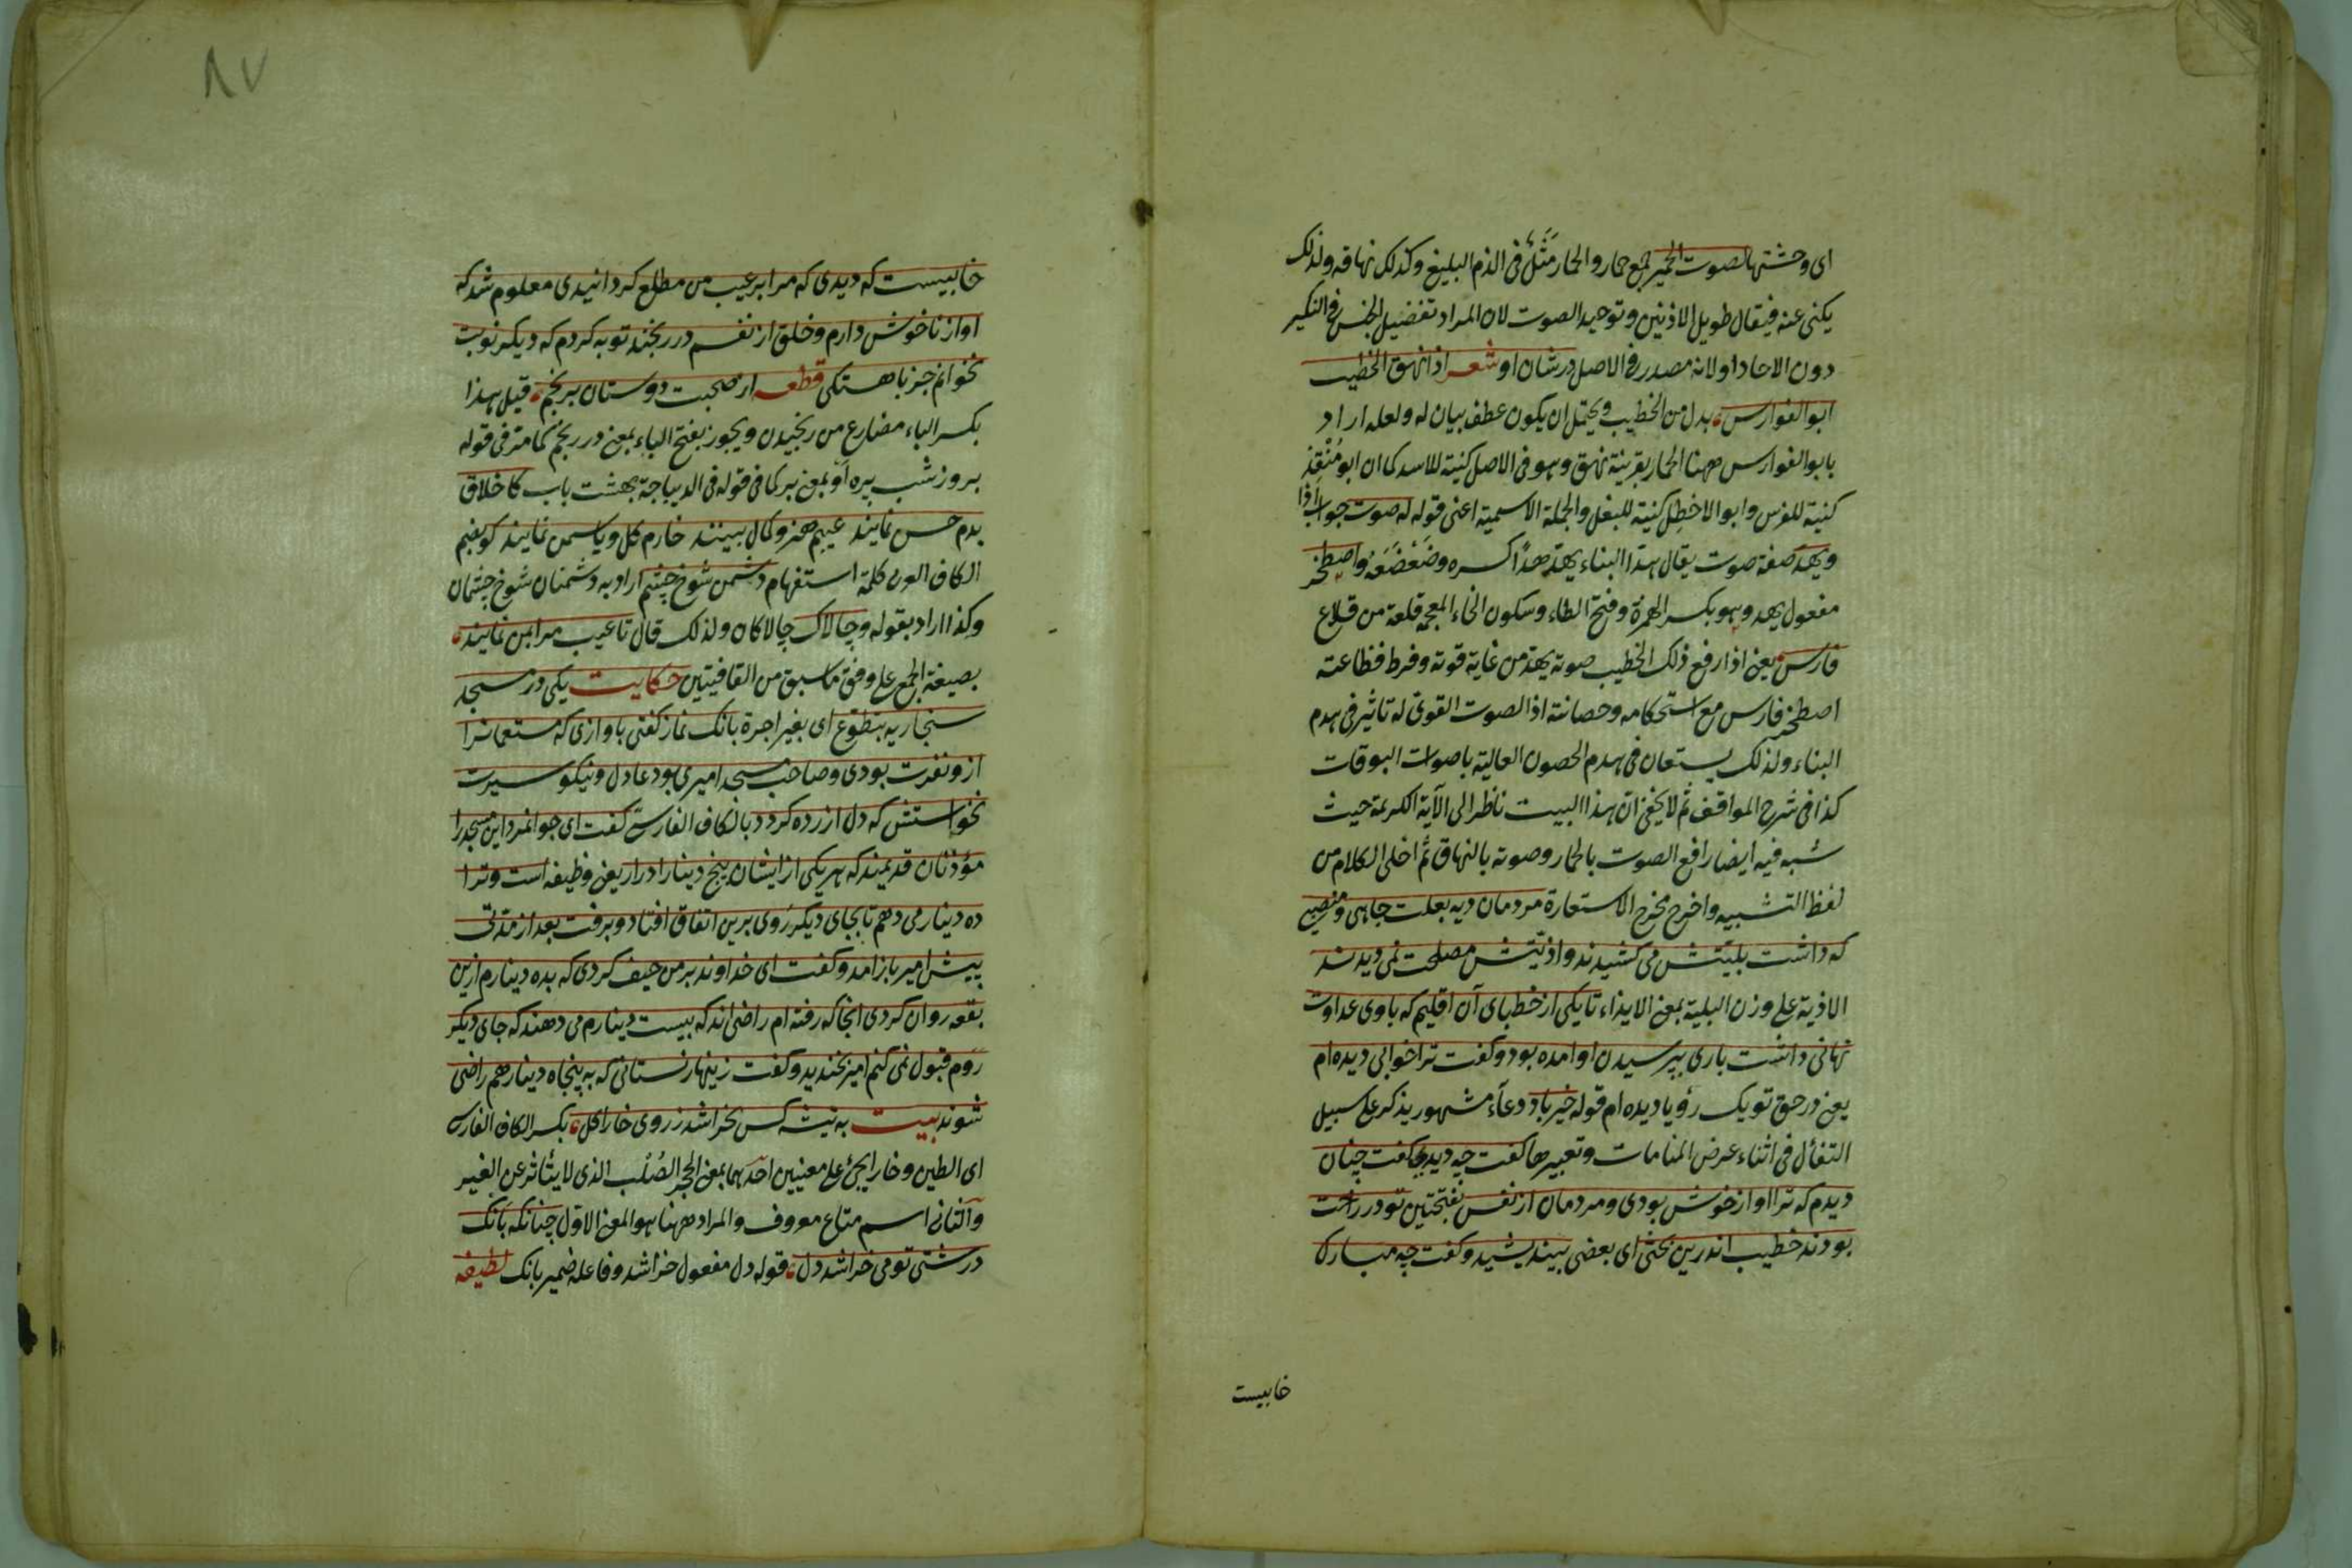 ای وحشتها لصوت الحمیر جمع حمار والحمار مَثَلٌ فی الذم البلیغ وکذلک نهاقه ولذلک
یکنی عنه فیقال طویل الاذنین وتوحید الصوت لان المراد تفضیل الجنس فی النکیر
دون الاحاد او لانه مصدر فی الاصل درشان او شعر اذا نهق الخطیب
ابو الفوارس بدل من الخطیب ویحتمل ان یکون عطف بیان له ولعله اراد
بابو الفوارس ههنا الحمار بقرینة نهق وهو فی الاصل کنیة للاسد کما ان ابو مُنْقِذ
کنیة للفرس وابو الاخطل کنیة للبغل والجملة الاسمیة اعنی قوله له صوت جواب اذا
ویهدّ صفة صوت یقال هدّ البناء یهدّ هدّا کسره وضَعْضَعَهُ واصطخر
مفعول یهد وهو بکسر الهمزة وفتح الطاء وسکون الخاء المعجمة قلعة من قلاع
فارس یعنی اذا رفع ذلک الخطیب صوته یهدّ من غایة قوته وفرط فظاعته
اصطخر فارس مع استحکامه وحصانته اذ الصوت القوی له تاثیر فی هدم
البناء ولذلک یستعان فی هدم الحصون العالیة باصوات البوقات
کذا فی شرح المواقف ثم لا یخفی ان هذا البیت ناظر الی الآیة الکریمة حیث
شبه فیه ایضا رافع الصوت بالحمار وصوته بالنهاق ثم اخلی الکلام من
لفظ التشبیه واخرج مخرج الاستعارة مردمان دیه بعلت جاهی ومنصبی
که داشت بلیّتش می کشیدند واذیّتش مصلحت نمی دیدند
الاذیة علی وزن البلیة بمعنی الایذاء تا یکی از خطبای آن اقلیم که باوی عداوت
نهانی داشت باری بپرسیدن او امده بود وکفت ترا خوابی دیده ام
یعنی در حق تو یک رؤیا دیده ام قوله خیر باد دعآء مشهور یذکر علی سبیل
التفأل فی اثناء عرض المنامات وتعبیرها کفت چه دیدی کفت چنان
دیدم که ترا اواز خوش بودی ومردمان از نفس بفتحتین تو در راحت
بودند خطیب اندرین بختی ای بعضی بیندیشید وکفت چه مبارک
خابیست
۸۷
خابیست که دیدی که مرا بر عیب من مطلع کردانیدی معلوم شد که
اواز ناخوش دارم وخلق از نفسم در رنجند توبه کردم که دیکر نوبت
نخوانم جز باهستکی قطعه از صحبت دوستان برنجم قیل هذا
بکسر الباء مضارع من رنجیدن ویجوز بفتح الباء بمعنی در رنجم کما مر فی قوله
بروز شب پره او بمعنی بر کما فی قوله فی الدیباجة بهشت باب کاخلاق
بدم حسن نمایند عیبم هنر وکمال بینند خارم کل ویاسمن نمایند کو بضم
الکاف العربی کلمة استفهام دشمن شوخ چشم اراد به دشمنان شوخ چشمان
وکذا اراد بقوله وچالاک چالاکان ولذلک قال تا عیب مرا بمن نمایند
بصیغة الجمع علی وفق ماسبق من القافیتین حکایت یکی در مسجد
سنجاریه بتطوع ای بغیر اجرة بانک نماز کفتی باوازی که مستمعانرا
ازو نفرت بودی وصاحب مسجد امیری بود عادل ونیکو سیرت
نخواستش که دل ازرده کردد بالکاف الفارسی کفت ای جوانمرد این مسجد را
مؤذنان قدیمند که هر یکی از ایشان پنج دینار ادرار یعنی وظیفه است وترا
ده دینار می دهم تا بجای دیکر رَوی برین اتفاق افتاد وبرفت بعد از مدتی
پیش امیر باز امد وکفت ای خداوند بر من حیف کردی که بده دینارم ازین
بقعه روان کردی انجا که رفته ام راضی اند که بیست دینارم می دهند که جای دیکر
رَوم قبول نمی کنم امیر بخندید وکفت زینهار نستانی که به پنجاه دینار هم راضی
شوند بیت به تیشه کس نخراشد ز روی خارا کل بکسر الکاف الفارسی
ای الطین وخارا یجیٔ علی معنیین احدهما بمعنی الحجر الصُلْب الذی لا یتأثر عن الغیر
والثانی اسم متاع معروف والمراد ههنا هو المعنی الاوّل چنانکه بانک
درشتی تو می خراشد دل قوله دل مفعول خراشد وفاعله ضمیر بانک لطیفه